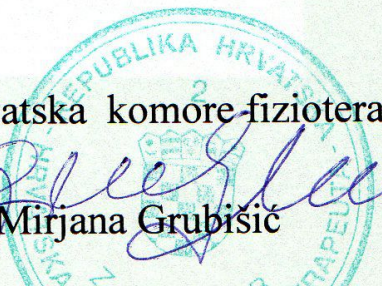 REPUBLIKA HRVATSKA
2
atska komore fiziotera
Mirjana Grubišić